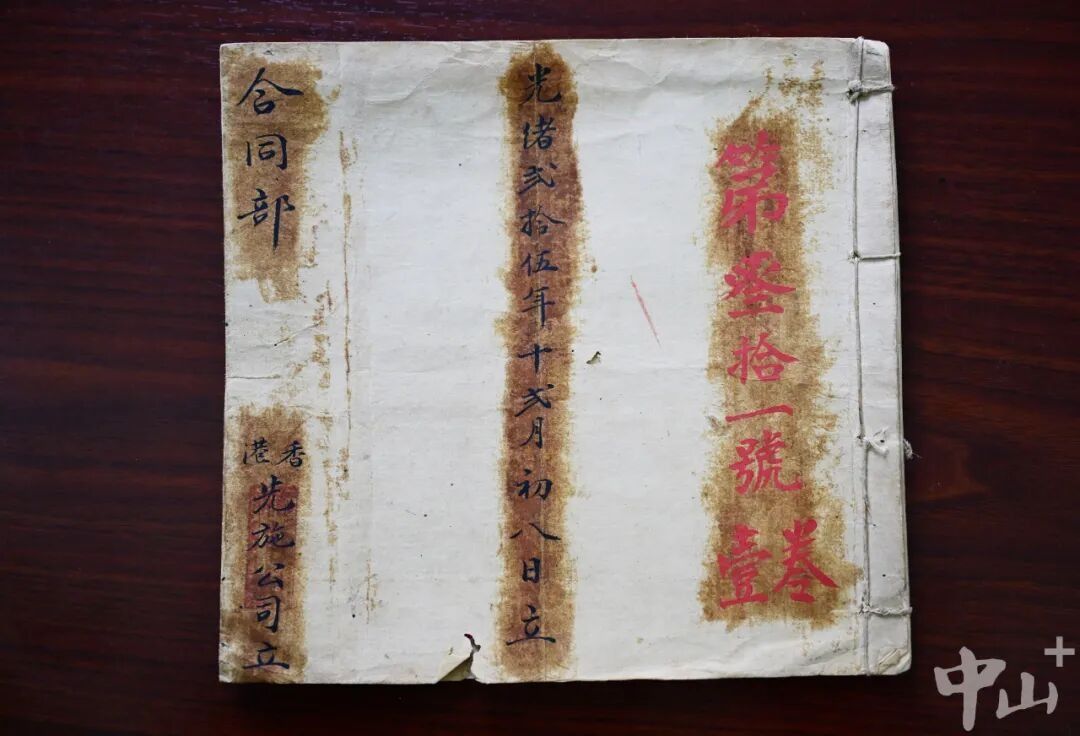 第叁拾一號
卷壹
光緒弍拾伍年十弍月初八日立
合同部
香港
先施公司立
中山+